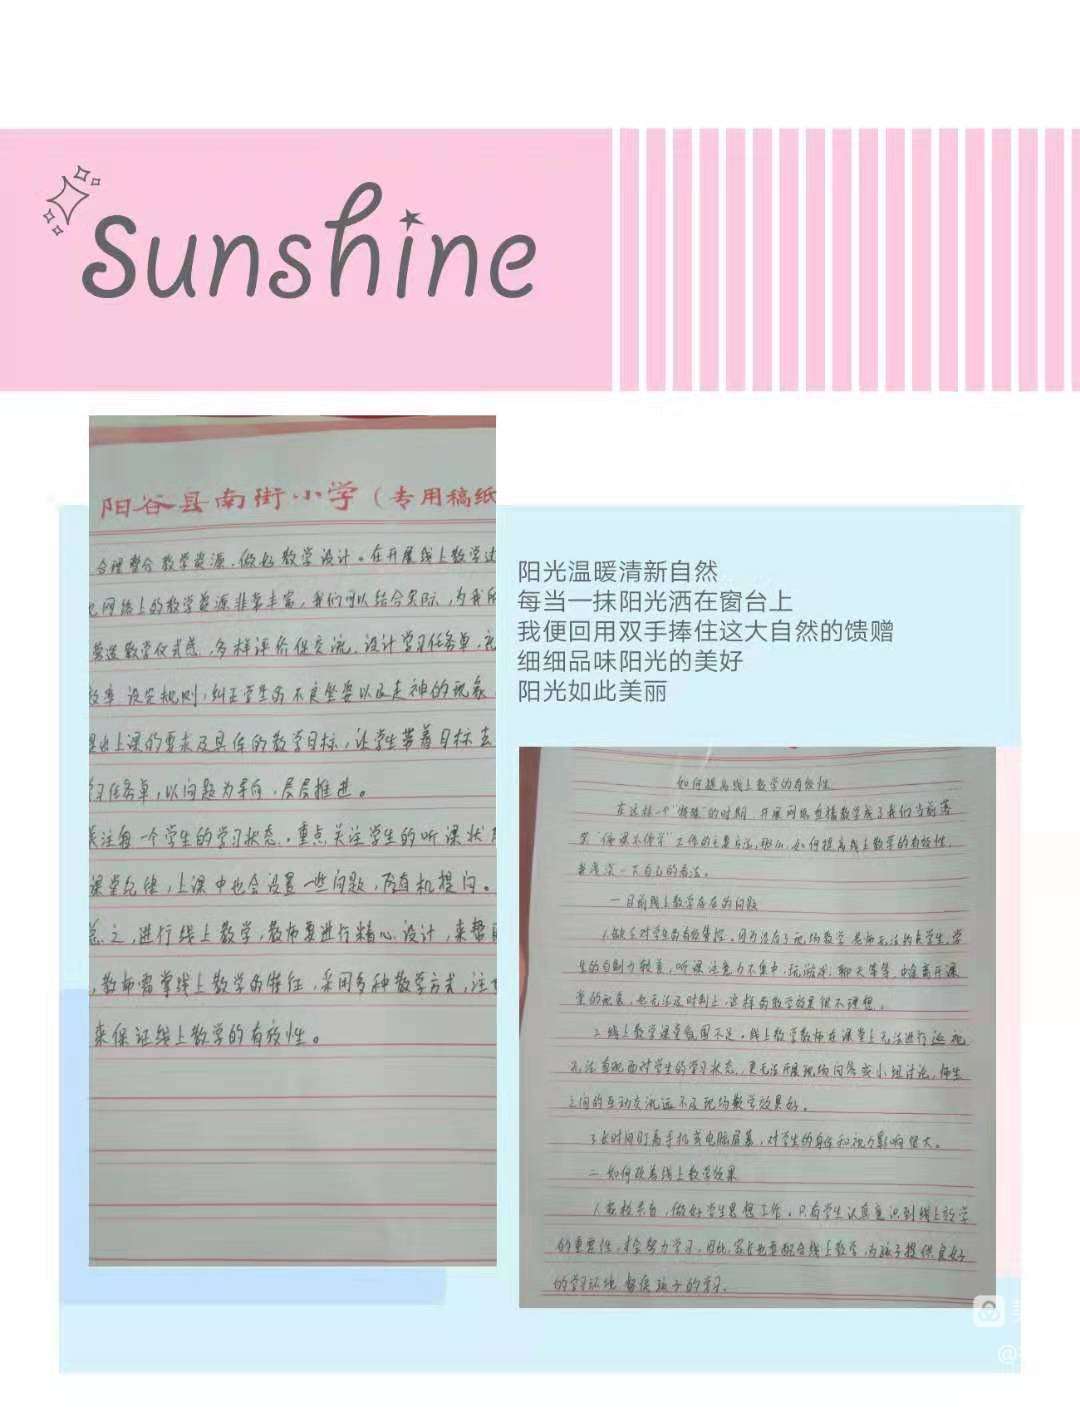 Sunshine
阳谷县南街小学（专用稿纸
合理整合教学资源，做好教学设计。在开展线上教学过
网络上的教学资源非常丰富，我们可以结合实际，为我所
营造教学仪式感，多样评价促交流，设计学习任务单，
效率，设定规则，纠正学生的不良坐姿以及走神的现象
提出上课的要求及具体的教学目标，让学生带着目标去
学习任务单，以问题为导向，层层推进。
关注每一个学生的学习状态，重点关注学生的听课状
课堂纪律，上课中也会设置一些问题，随机提问。
总之，进行线上教学，教师要进行精心设计，来帮
，教师需掌线上教学的特征，采用多种教学方式，注
来保证线上教学的有效性。
阳光温暖清新自然
每当一抹阳光洒在窗台上
我便回用双手捧住这大自然的馈赠
细细品味阳光的美好
阳光如此美丽
如何提高线上教学的有效性
在这样一个"特殊"的时期，开展网络直播教学成了我们当前落
实"停课不停学"工作的主要方法，那么，如何提高线上教学的有效性，
我浅谈一下自己的看法。
一 目前线上教学存在的问题
1.缺乏对学生的有效监控。因为没有了现场教学，老师无法约束学生，学
生的自制力较差，听课注意力不集中，玩游戏，聊天等等，中途离开课
堂的现象，也无法及时制止，这样的教学效果很不理想。
2.线上教学课堂氛围不足。线上教学教师在课堂上无法进行巡视
无法直观面对学生的学习状态，更无法开展现场问答或小组讨论，师生
之间的互动交流远不及现场教学效果好。
3.长时间盯着手机或电脑屏幕，对学生的身体和视力影响很大。
二 如何改善线上教学效果
1.家校共育，做好学生思想工作。只有学生认真意识到线上教学
的重要性，才会努力学习，因此，家长也要配合线上教学，为孩子提供良好
的学习环境，督促孩子的学习。